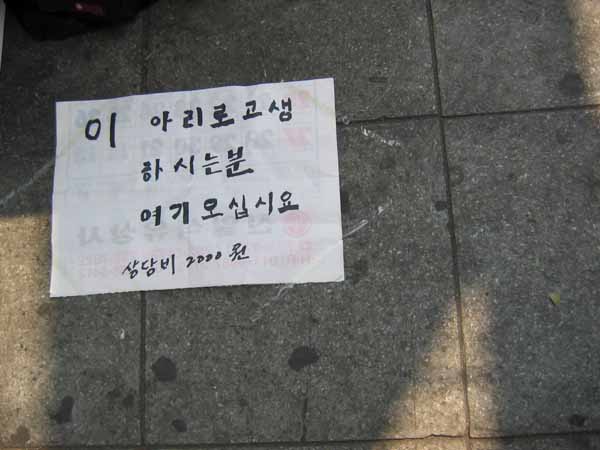 이 아리로고생
하시는분
여기오십시요
상담비 2000원